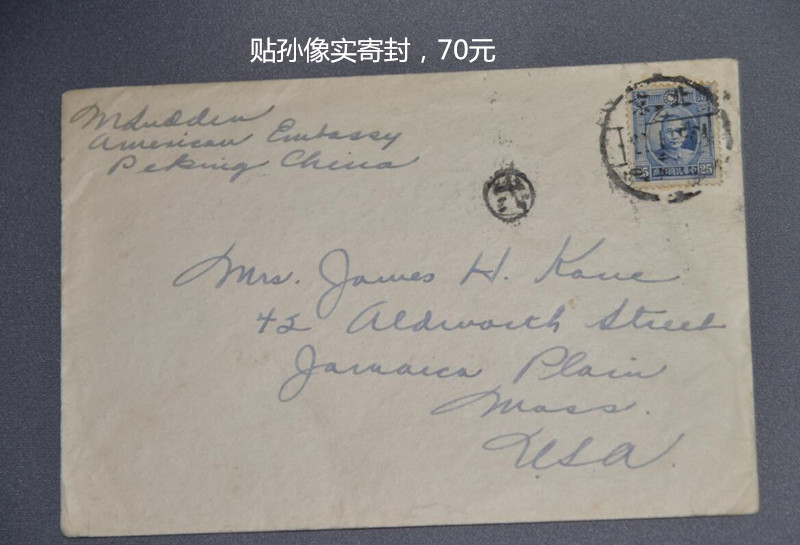 贴孙像实寄封，70元
MLudden
American Embassy
Peking China
25 25
Mrs. James H. Kane
42 Aldworth Street
Jamaica Plain
Mass.
USA.